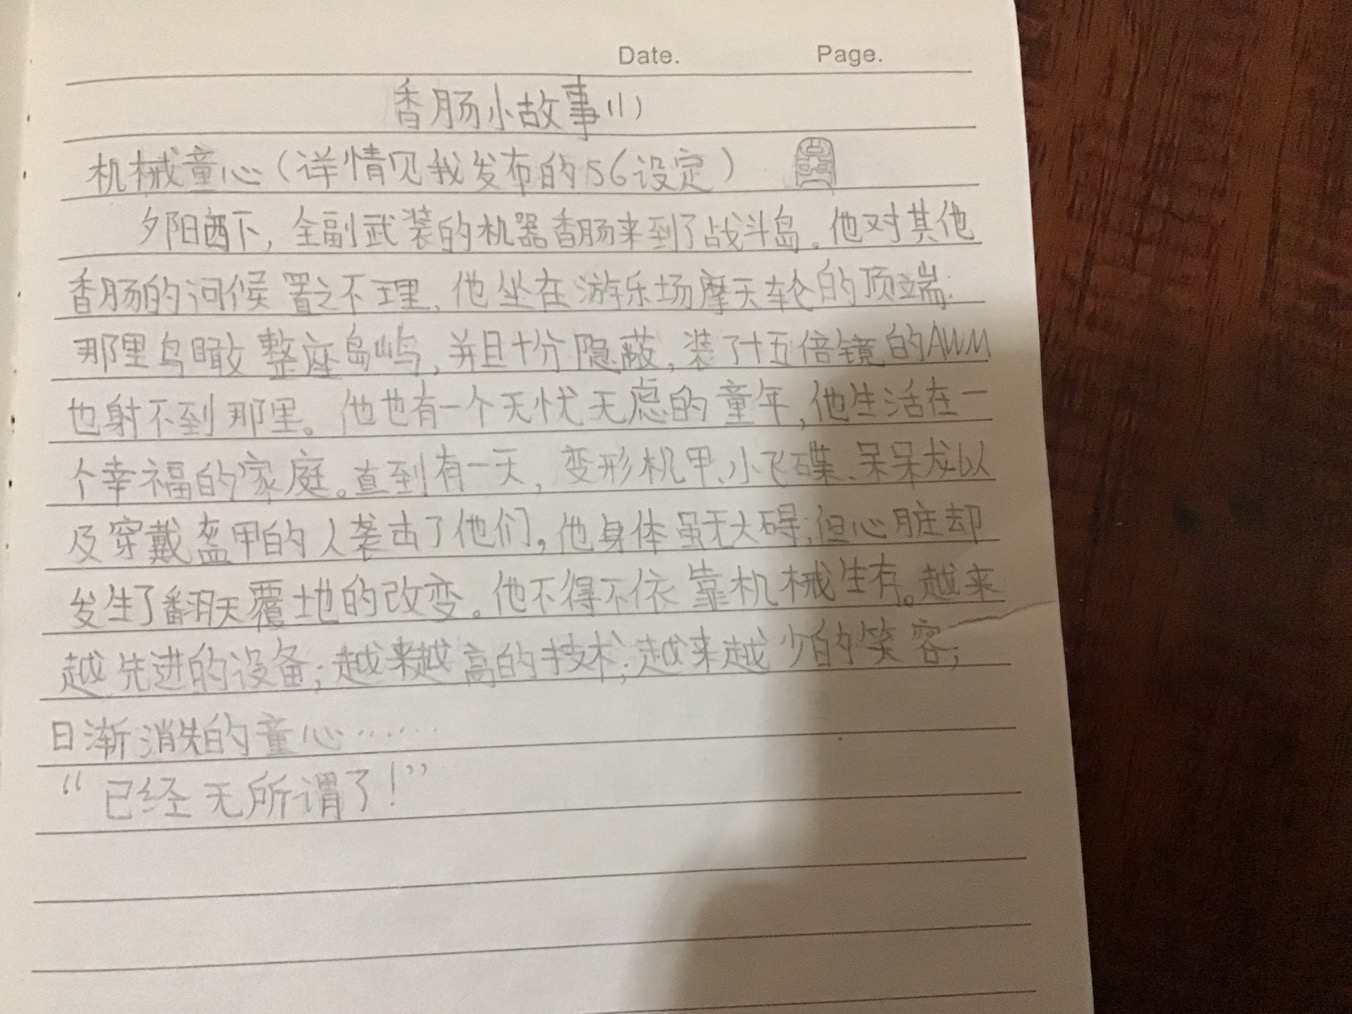 Date. Page.
香肠小故事(1)
机械童心(详情见我发布的S6设定)
夕阳西下,全副武装的机器香肠来到了战斗岛。他对其他
香肠的问候置之不理,他坐在游乐场摩天轮的顶端.
那里鸟瞰整座岛屿,并且十分隐蔽,装了十五倍镜的AWM
也射不到那里。他也有一个无忧无虑的童年,他生活在一
个幸福的家庭。直到有一天,变形机甲、小飞碟、呆呆龙以
及穿戴盔甲的人袭击了他们。他身体虽无大碍;但心脏却
发生了翻天覆地的改变。他不得不依靠机械生存。越来
越先进的设备;越来越高的技术;越来越少的笑容;
日渐消失的童心……
“已经无所谓了!”